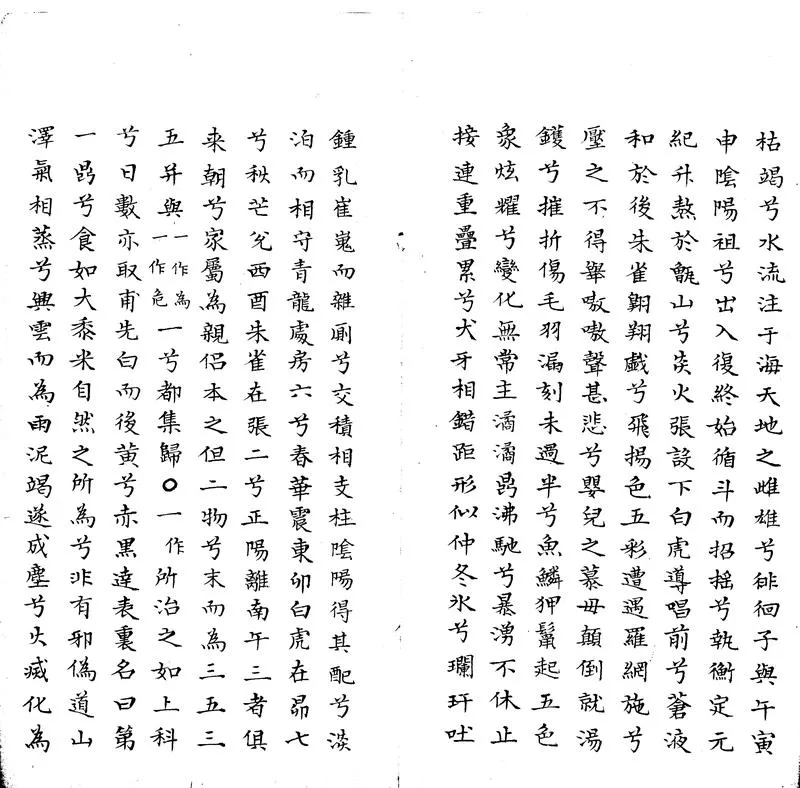 枯竭兮水流注于海天地之雌雄兮徘徊子與午寅
申陰陽祖兮出入復終始循斗而招搖兮執衡定元
紀升熬於甑山兮炎火張設下白虎導唱前兮蒼液
和於後朱雀翺翔戲兮飛揚色五彩遭遇羅網施兮
壓之不得舉嗷嗷聲甚悲兮嬰兒之慕母顛倒就湯
鑊兮摧折傷毛羽漏刻未過半兮魚鱗狎鬣起五色
象炫耀兮變化無常主潏潏鼎沸馳兮暴湧不休止
接連重疊累兮犬牙相錯距形似仲冬氷兮瓓玕吐
鍾乳崔嵬而雜厠兮交積相支柱陰陽得其配兮淡
泊而相守青龍處房六兮春華震東卯白虎在昴七
兮秋芒兌西酉朱雀在張二兮正陽離南午三者俱
来朝兮家屬為親侶本之但二物兮末而為三五三
五并與一作為一作危一兮都集歸〇一作所治之如上科
兮日數亦取甫先白而後黃兮赤黑達表裏名曰第
一鼎兮食如大黍米自然之所為兮非有邪偽道山
澤氣相蒸兮興雲而為雨泥竭遂成塵兮火滅化為